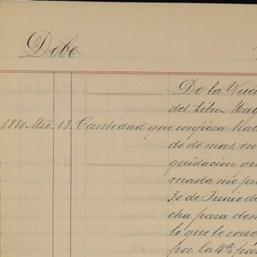 Debe
De la Vuel
del Libro May
1880 Mzo. 13. Cantidad que confiesa hab
do de mas, en
quidacion qu
mada me pr
30 de Junio de
cha para den
lo que le corre
por la 4ª pa